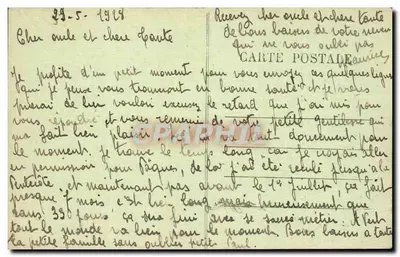 29-5-1928
Cher oncle et chere Tante
Recevez cher oncle et chere tante
de bons baisers de votre neveu
qui ne vous oubli pas
Maurice
CARTE POSTALE
Je profite d'un petit moment pour vous envoyer ces quelques lignes
que je pense vous trouveront en bonne santé et je vous
prierai de bien vouloir excusez le retard que j'ai mis pour
vous, répondre et vous remercie de votre petite gentillesse qui
ma fait bien plaisir
ça va tout doucement pour
le moment. Je trouve le temps long car je croyais aller
en permission pour Pâques, de la j'ai été reculé jusqu'à la
Pentecôte et maintenant pas avant le 1er Juillet, ça fait
presque 7 mois c'est bien long, mais heureusement que
dans 330 jours ça sera fini avec se sacré métier. A part
tout le monde va bien pour le moment. Bons baisers a toute
la petite famille sans oublier petit Paul.
CPAPHIL